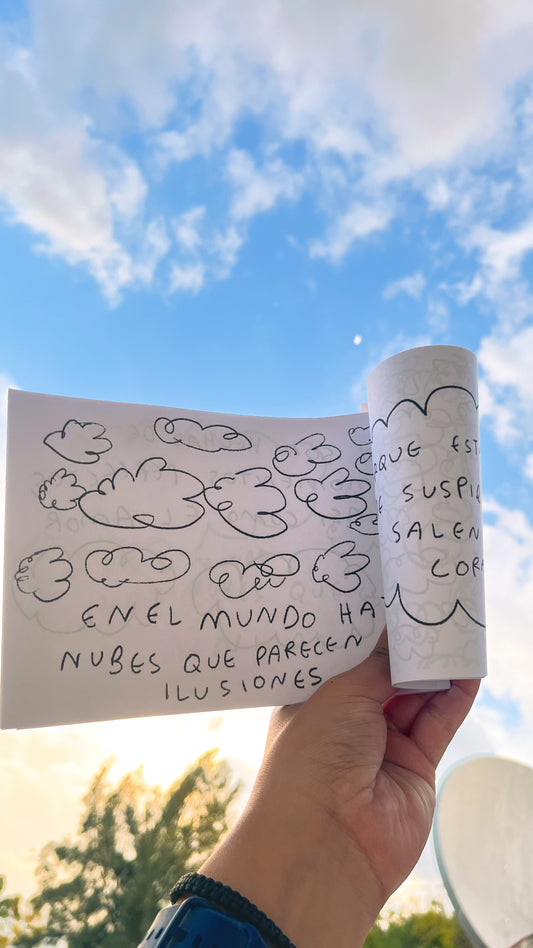 EN EL MUNDO HA
NUBES QUE PARECEN
ILUSIONES
QUE EST
SUSPI
SALEN
COR